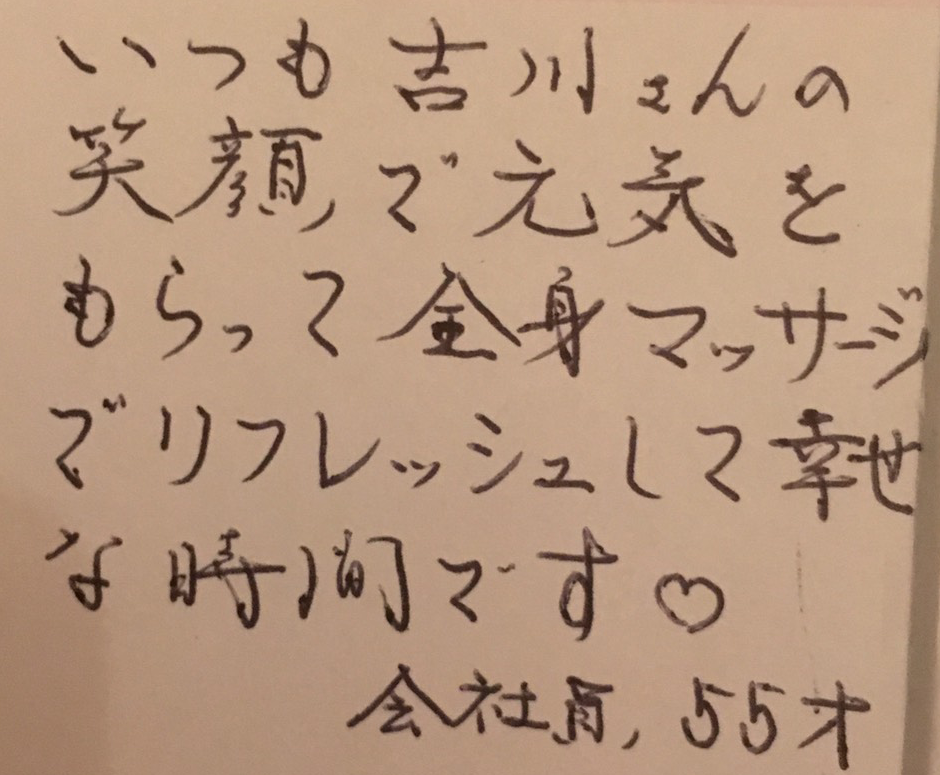 いつも吉川さんの
笑顔で元気を
もらって全身マッサージ
でリフレッシュして幸せ
な時間です♡
会社員, 55才